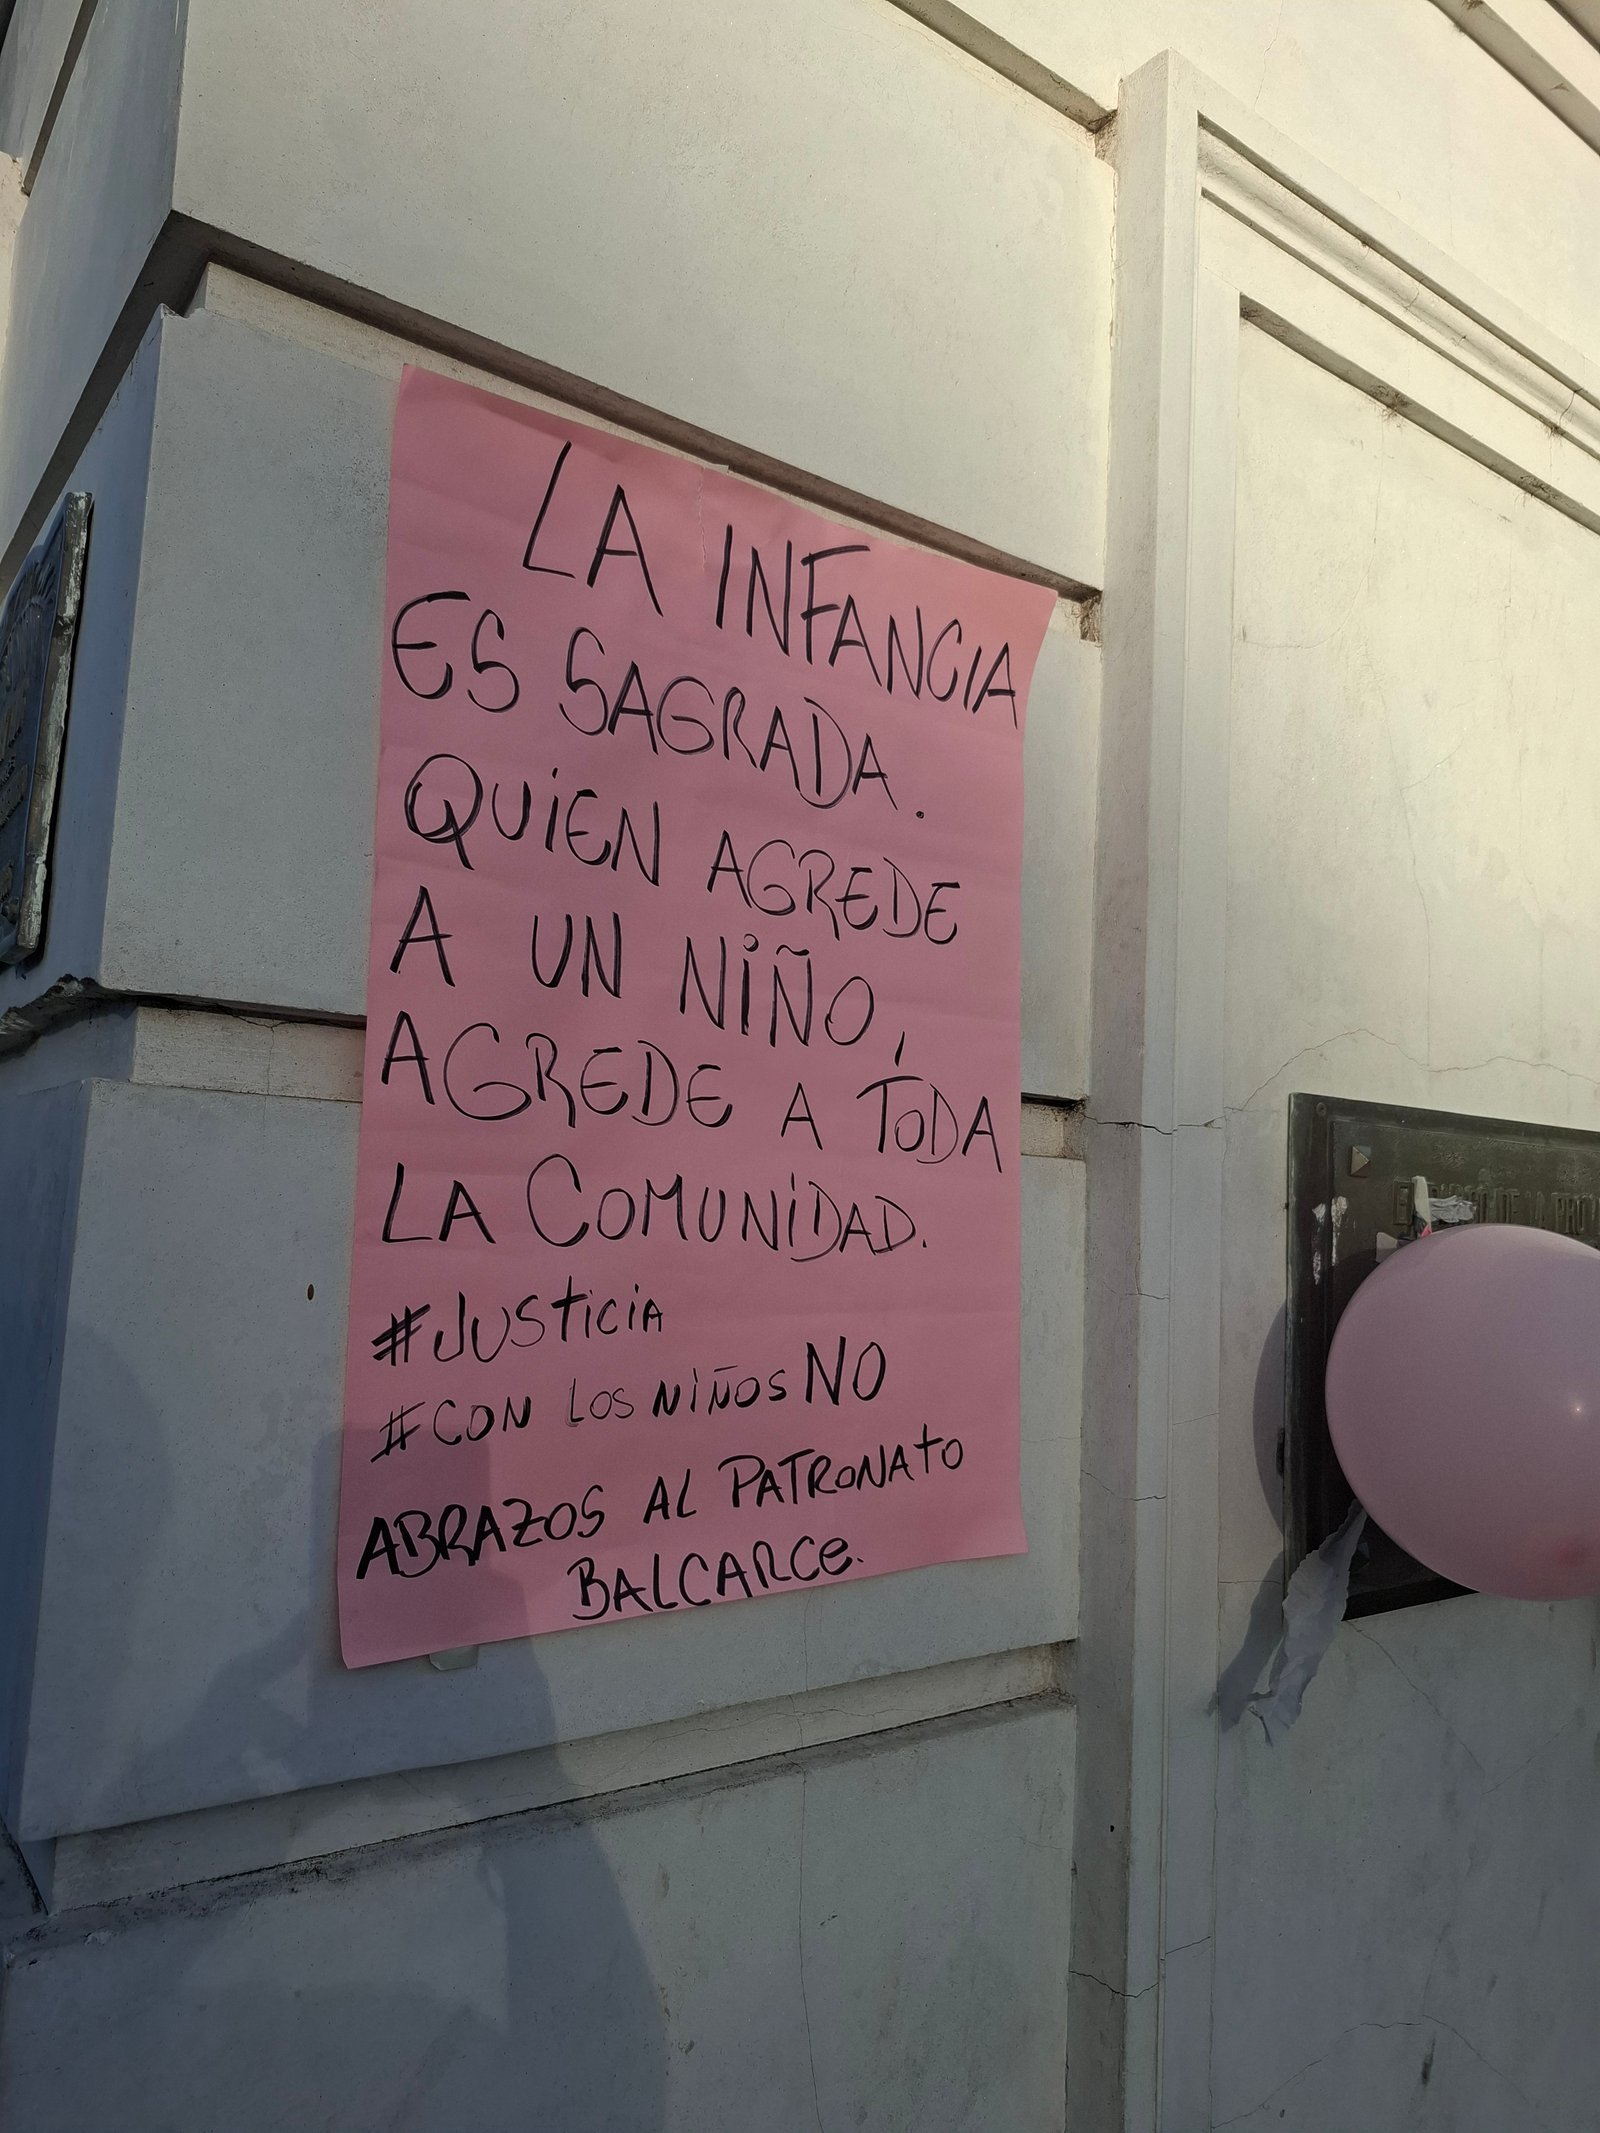 LA INFANCIA
ES SAGRADA.
QUIEN AGREDE
A UN NIÑO,
AGREDE A TODA
LA COMUNIDAD.
#JUSTICIA
#CON LOS NIÑOS NO
ABRAZOS AL PATRONATO
BALCARCE.
DE LA